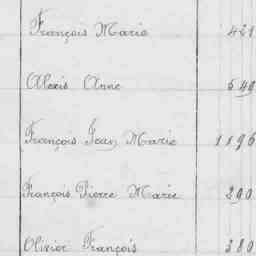 François Marie 421
Alexis Anne 540
François Jean Marie 1196
François Pierre Marie 290
Olivier François 380